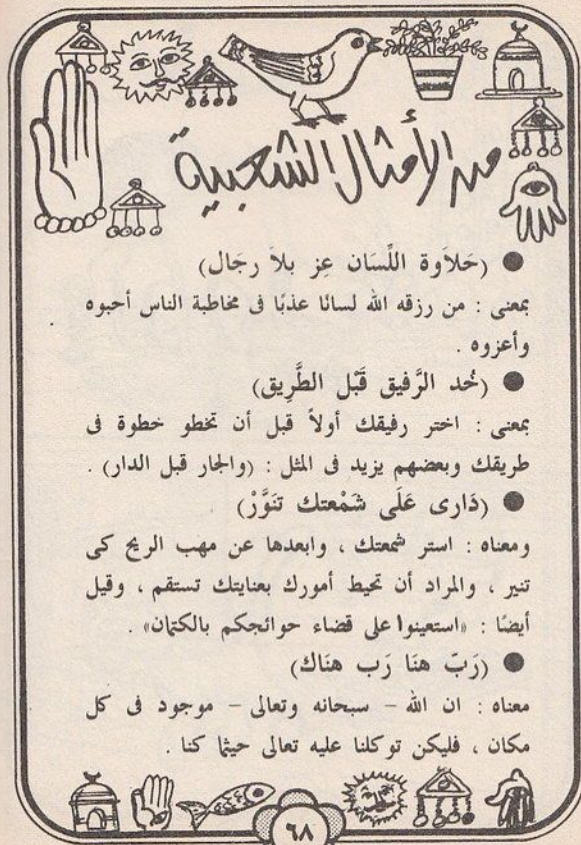 من الأمثال الشعبية
● (حَلاَوة اللِّسَان عِز بلاَ رجَال)
بمعنى : من رزقه الله لسانًا عذبًا فى مخاطبة الناس أحبوه
وأعزوه .
● (خُد الرَّفيق قَبْل الطَّرِيق)
بمعنى : اختر رفيقك أولاً قبل أن تخطو خطوة فى
طريقك وبعضهم يزيد فى المثل : (والجار قبل الدار) .
● (دَارى عَلَى شَمْعتك تنَوَّرْ)
ومعناه : استر شمعتك ، وابعدها عن مهب الريح كى
تنير ، والمراد أن تحيط أمورك بعنايتك تستقم ، وقيل
أيضًا : «استعينوا على قضاء حوائجكم بالكتمان» .
● (رَبّ هنَا رَب هنَاك)
معناه : ان الله – سبحانه وتعالى – موجود فى كل
مكان ، فليكن توكلنا عليه تعالى حيثما كنا .
٦٨